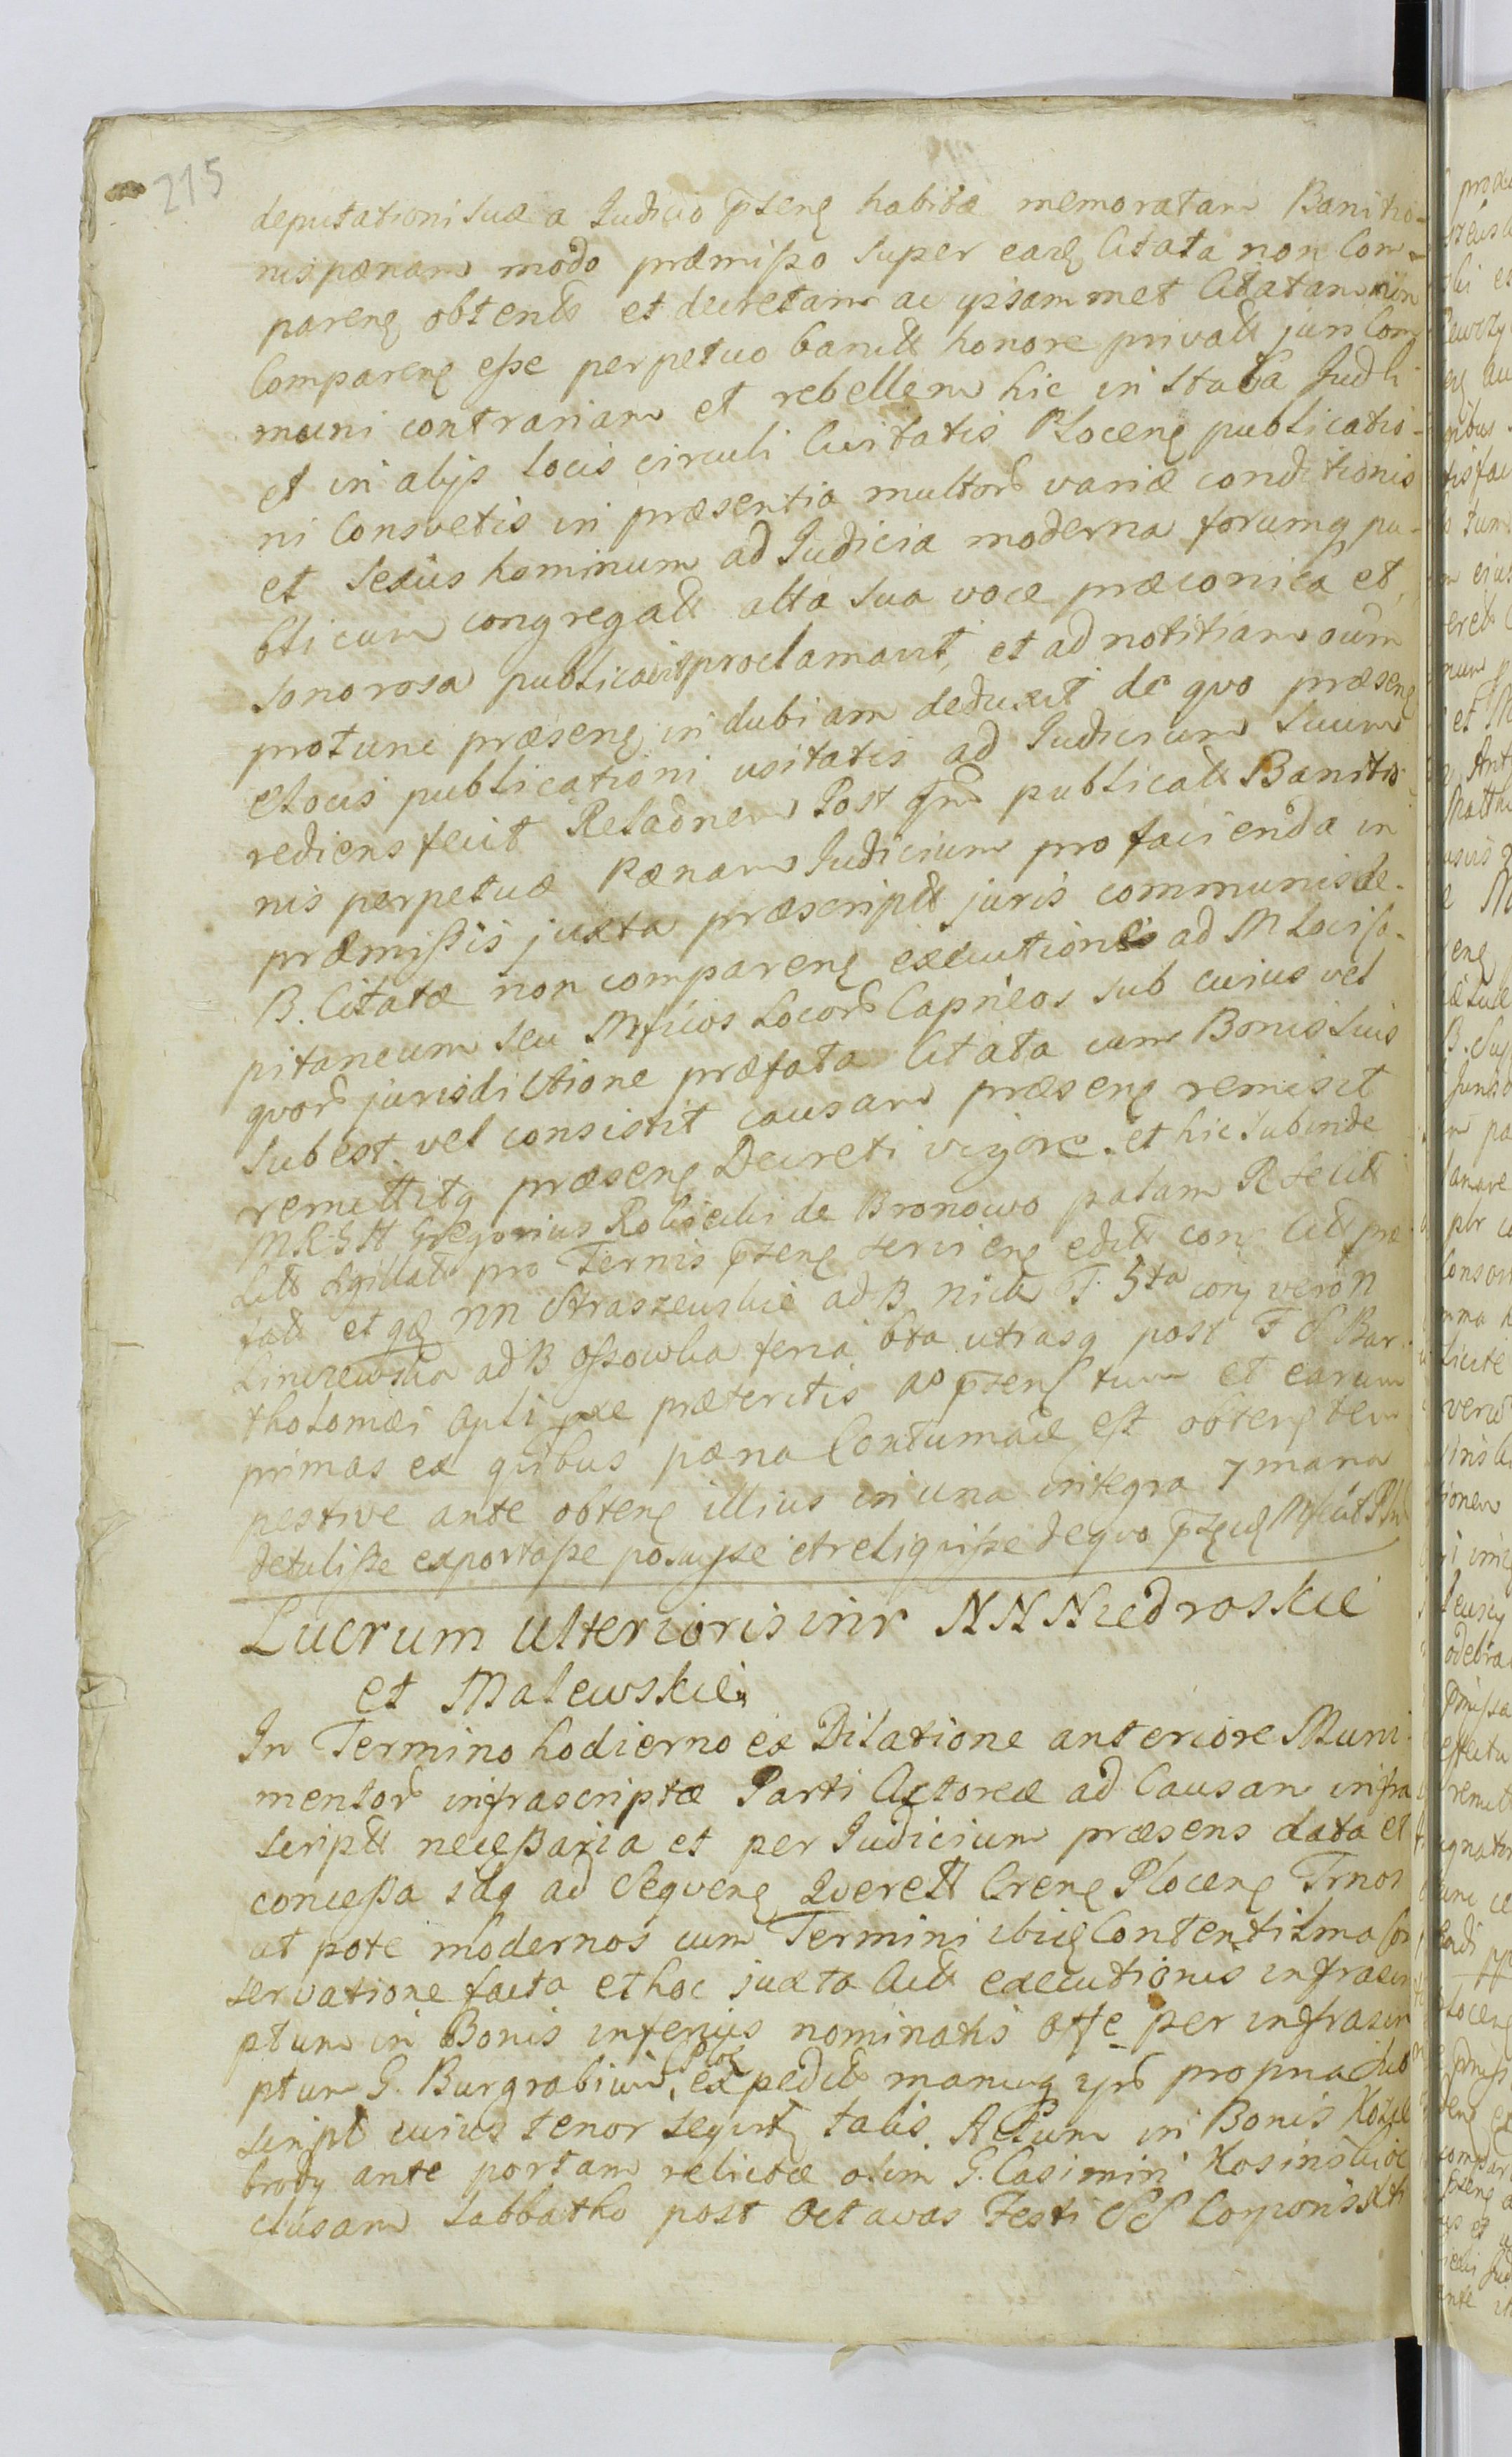 215
deputationi suæ a Judicio pñteng habitæ memoratam Banitio-
nis pænam modo præmisso super eadg Citata non Com-
pareng obtent et decretam ac ipsammet Citatam non
Compareng esse perpetuo banit honore privatt juri Com
muni contrariam et rebellem hic in staba Judli
et in alijs locis circuli Civitatis Ploceng publicatio-
ni Consvetis in præsentia multor variæ conditionis
et sexus hominum ad Judicia moderna forumq pu-
blicum congregatt alta sua voce præconica et
sonorosa publicavit proclamavit, et ad notitiam oum
protunc præseng in dubiam deduxit de qvo præseng
e Locis publicationi usitatis ad Judicium suum
rediens fecit Relaonem Post qm publicatt Banitio
nis perpetuæ Pænam Judicium pro facienda in
præmissis juxta præscriptt juris communis de
B. Citatæ non compareng executiones ad M Loci Ca-
pitaneum seu Mficos Locor Capneos sub cuius vel
qvor jurisdictione præfata Citata cum Bonis suis
subest vel consistit causam præseng remisit
remittitq præseng Decreti vigore. et hic subinde
MRSH Gregorius Rolicski de Bronowo palam R fecit
Litt sigillatt pro Ternis pñteng servieng editt conq Citt præ
fatt et qq NN Straszewskie ad B Nick F. 5ta conq vero N
Linczewska ad B Ossowka feria 6ta utrasq post F S Bar-
tholomæi Apli pxe præteritis Ao pñteng tum et earum
primas ex qibus pæna Contumaciæ est obteng tem
pestive ante obteng illius in una integra 7mana
detulisse exportasse posuisse et reliqvisse de qvo
Lucrum ulterioris inr NNNiedroskie
et Malewskie
In Termino hodierno ex Dilatione anteriore Muni-
mentor infrascriptæ Parti Actoreæ ad Causam infra
scriptt necessaria et per Judicium præsens data et
concessa sdq ad Seqveng Qverett Creng Ploceng Trnos
at pote modernos cum Termini ibidg Contentisma Con
servatione facta et hoc juxta Actt executionis infrascri
ptum in Bonis inferius nominatis offe per infrascri
ptum G. Burgrabium Ploc expeditt manuq ipr propria sub
script cuius tenor seqvitq talis. Actum in Bonis Kozie
brody ante portam relictæ olim G. Casimiri Kosinskie oc
clusam Sabbatho post Octavas Festi SS Corporis Xti